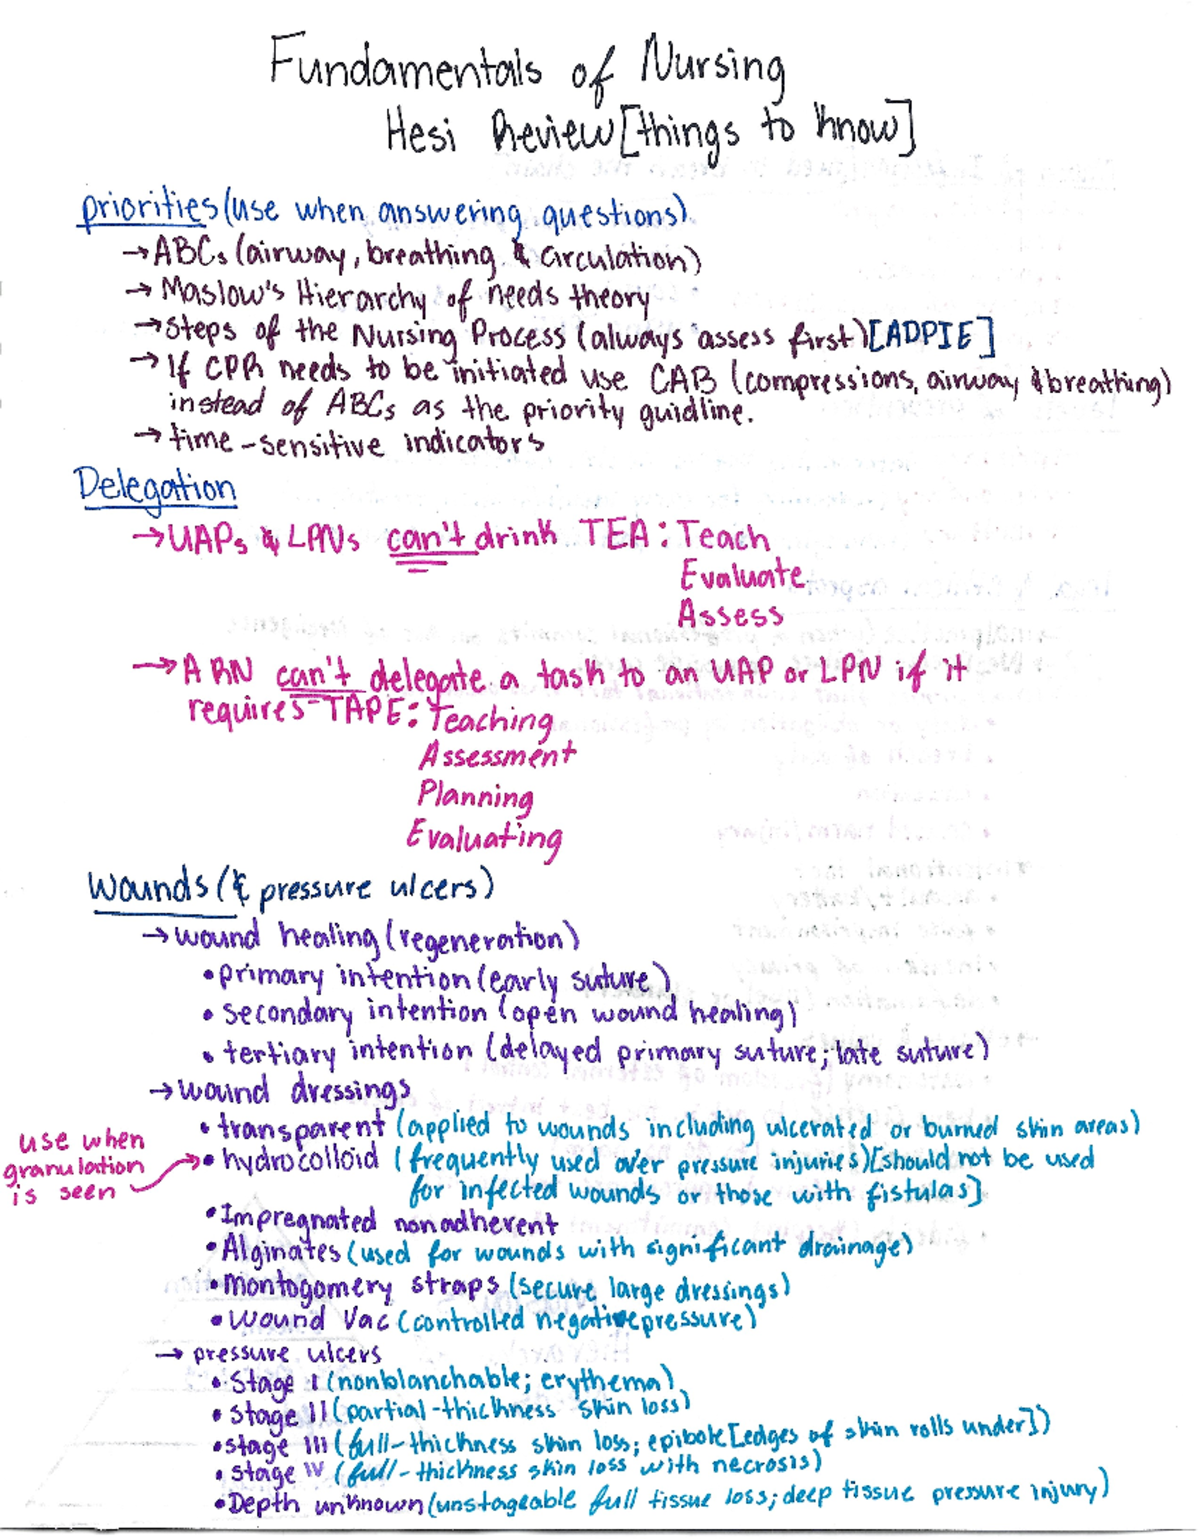 Fundamentals of Nursing
Hesi Review [things to know]
priorities (use when answering questions)
→ ABCs (airway, breathing & circulation)
→ Maslow's Hierarchy of needs theory
→ Steps of the Nursing Process (always assess first) [ADPIE]
→ If CPR needs to be initiated use CAB (compressions, airway & breathing)
instead of ABCs as the priority guidline.
→ time-sensitive indicators
Delegation
→ UAPs & LPNs can't drink TEA: Teach
Evaluate
Assess
→ A RN can't delegate a task to an UAP or LPN if it
requires TAPE: Teaching
Assessment
Planning
Evaluating
Wounds (& pressure ulcers)
→ wound healing (regeneration)
• primary intention (early suture)
• secondary intention (open wound healing)
• tertiary intention (delayed primary suture; late suture)
→ wound dressings
• transparent (applied to wounds including ulcerated or burned skin areas)
use when
granulation
is seen
• hydrocolloid (frequently used over pressure injuries) [should not be used
for infected wounds or those with fistulas]
• Impregnated nonadherent
• Alginates (used for wounds with significant drainage)
• montogomery straps (secure large dressings)
• wound Vac (controlled negative pressure)
→ pressure ulcers
• Stage I (nonblanchable; erythema)
• stage II (partial-thickness skin loss)
• stage III (full-thickness skin loss; epibole [edges of skin rolls under])
• stage IV (full-thickness skin loss with necrosis)
• Depth unknown (unstageable full tissue loss; deep tissue pressure injury)